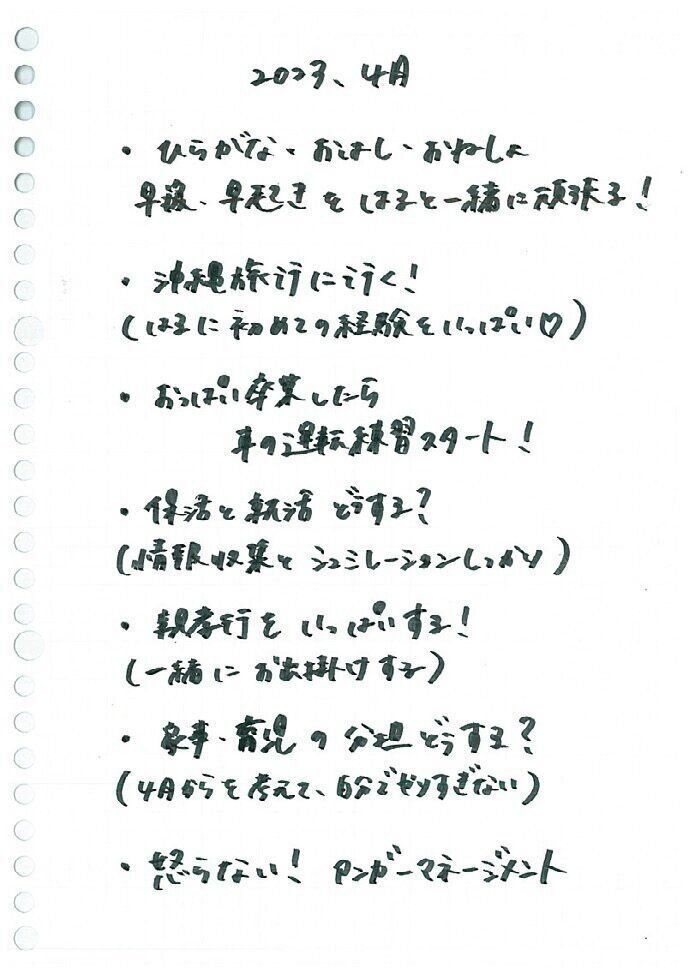 2023、4月
・ひらがな・おはし・おねしょ
早寝・早起きをはると一緒に頑張る!
・沖縄旅行に行く!
(はるに初めての経験をいっぱい♡)
・おっぱい卒業したら
車の運転練習スタート!
・保活と就活どうする?
(情報収集とシュミレーションしっかり)
・親孝行をいっぱいする!
(一緒にお出掛けする)
・家事・育児の分担どうする?
(4月からを考えて、自分でやりすぎない)
・怒らない! アンガーマネージメント